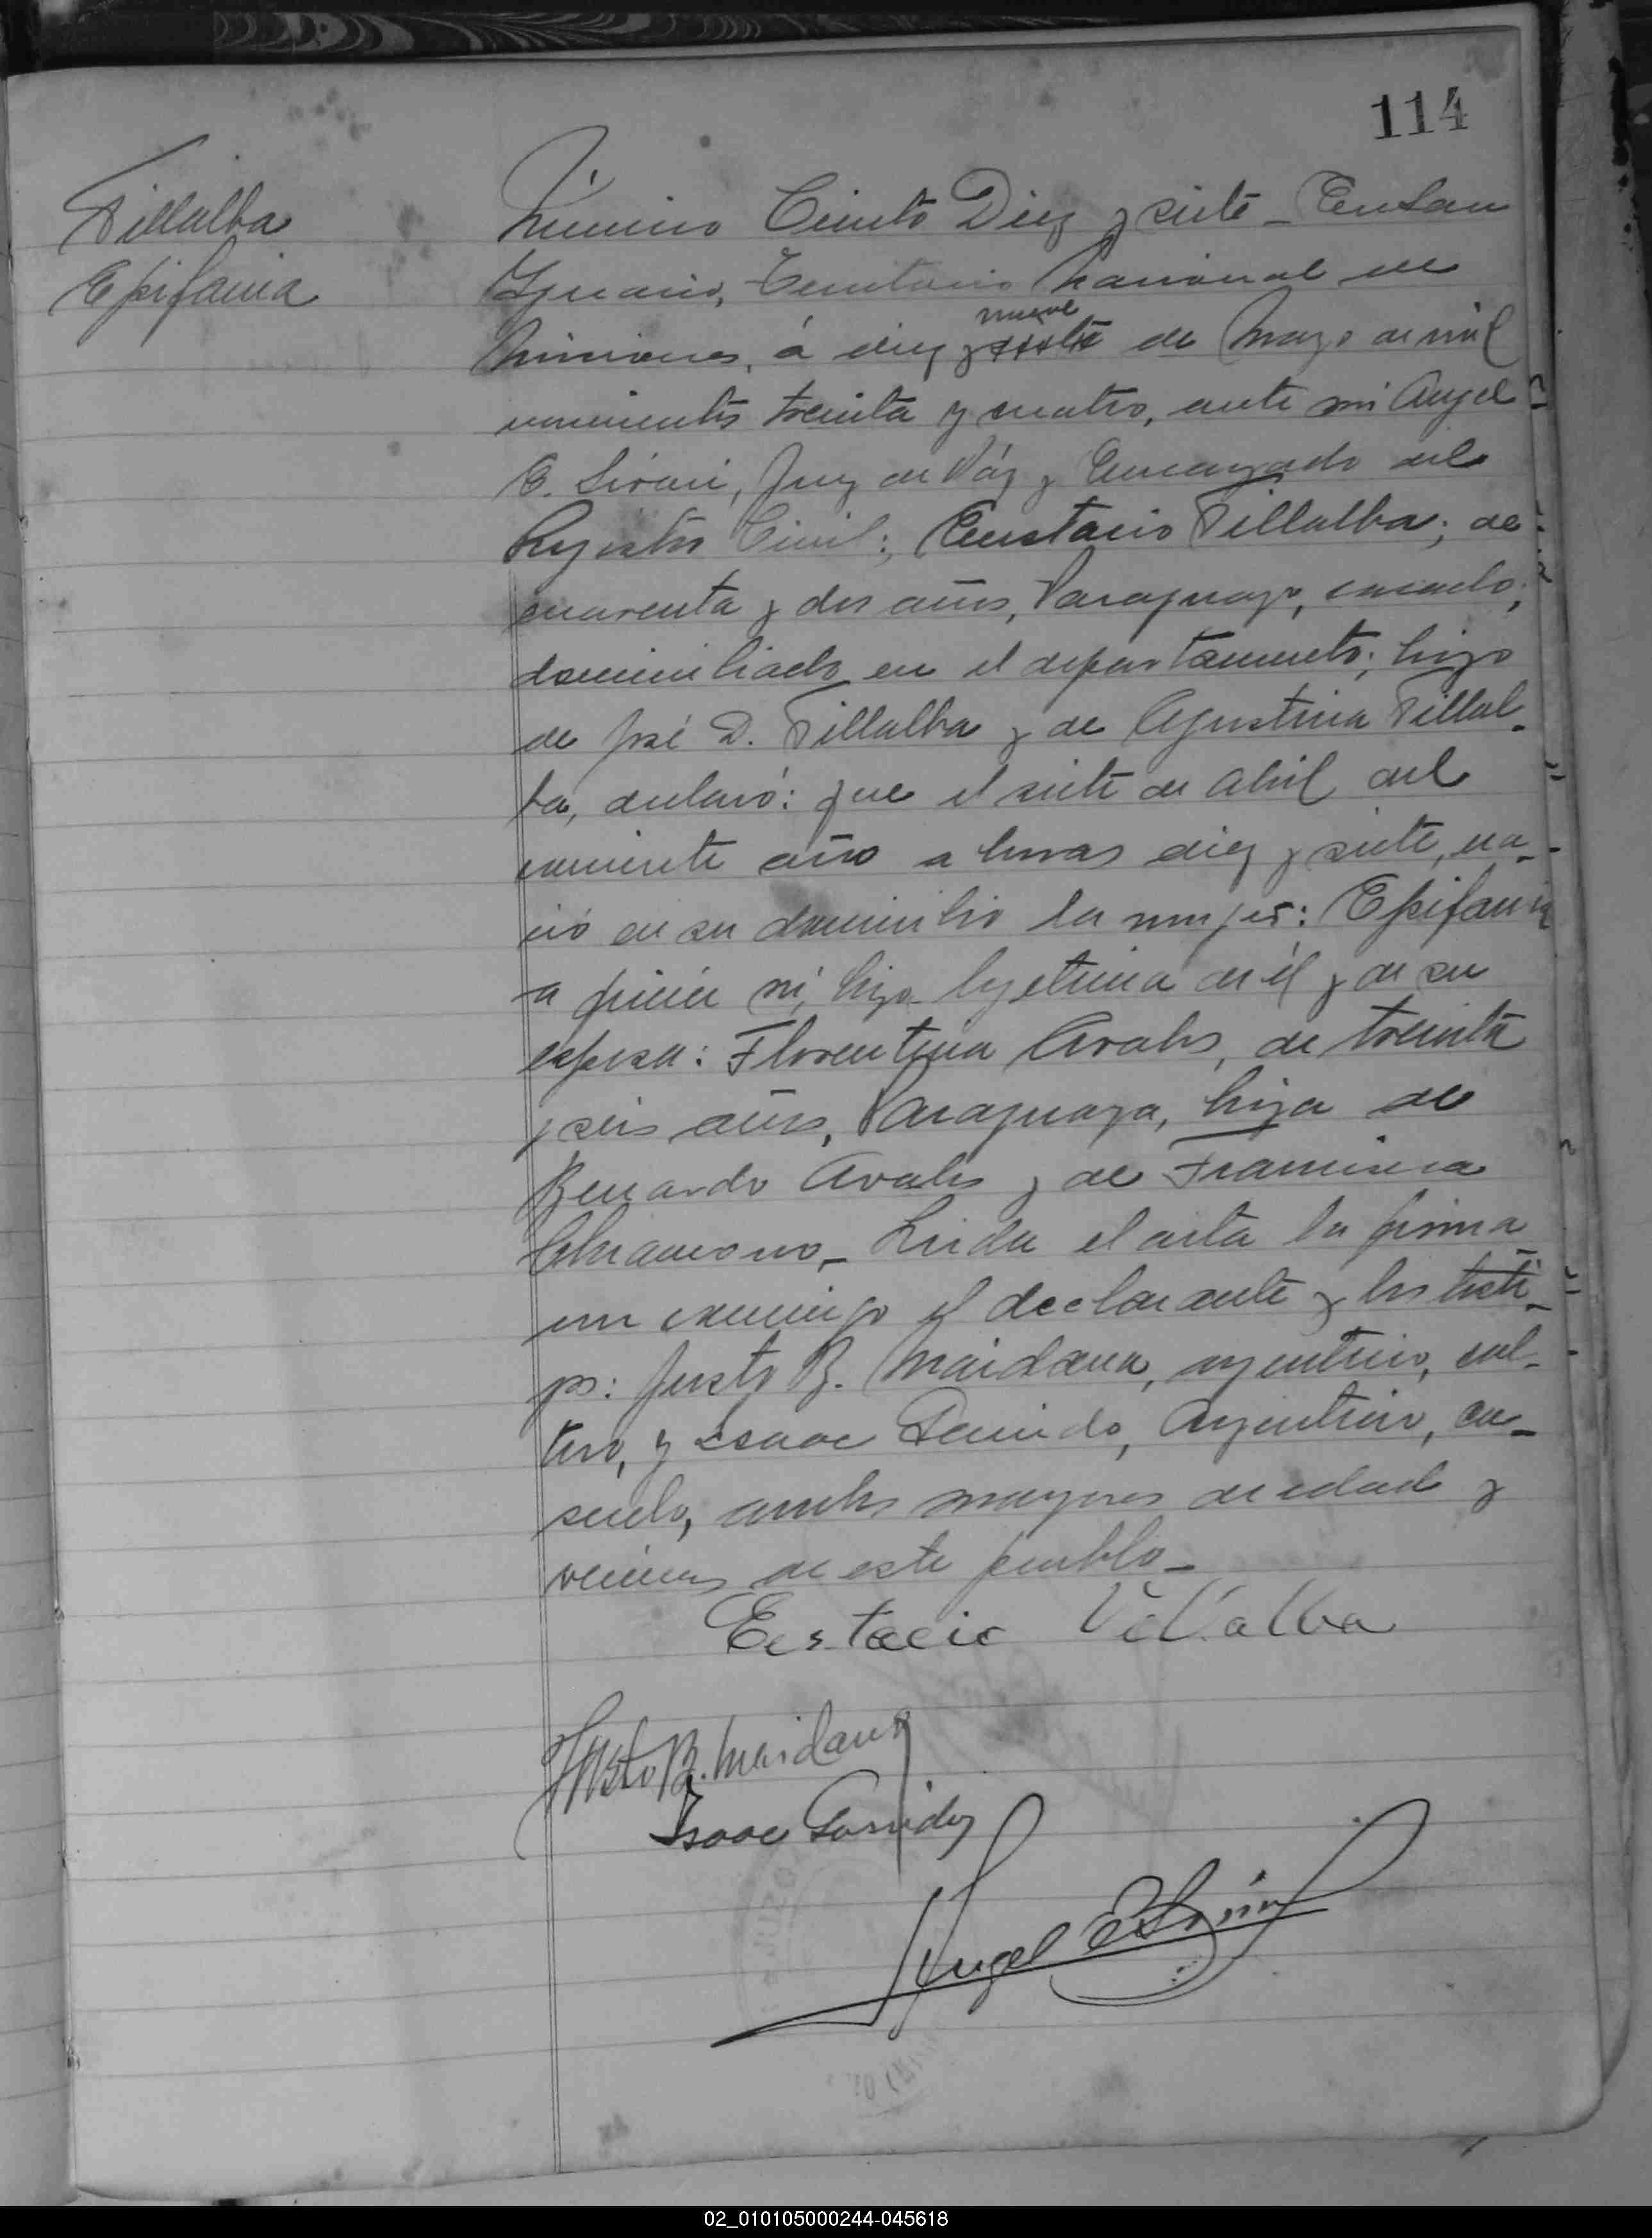 114
Villalba
Epifania
Número Ciento Diez y siete - En San
Ygnacio, Territorio Nacional de
nueve
Misiones, á diez y siete de Mayo de mil
novecientos treinta y cuatro, ante mi Angel
E. Sirari, Juez de Páz y Encargado del
Registro Civil; Eustacio Villalba; de
cuarenta y dos años, Paraguayo, casado,
domiciliado en el departamento; hijo
de José D. Villalba y de Agustina Villal-
ba, declaró: que el siete de Abril del
corriente año a horas diez y siete, na-
ció en su domicilio la mujer: Epifania
a quien ví, hija legitima de él y de su
esposa: Florentina Avalos, de treinta
y seis años, Paraguaya, hija de
Bernardo Avalos y de Francisca
Leida el acta la firma
con conmigo el declarante y los testi-
gos: Justo B. Maidana, argentino, sol-
tero, y Isaac Garrido, Argentino, ca-
sado, ambos mayores de edad y
vecinos de este pueblo -
Eustacio Villalba
Justo B. Maidana
Isaac Garrido
Angel E
02_010105000244-045618